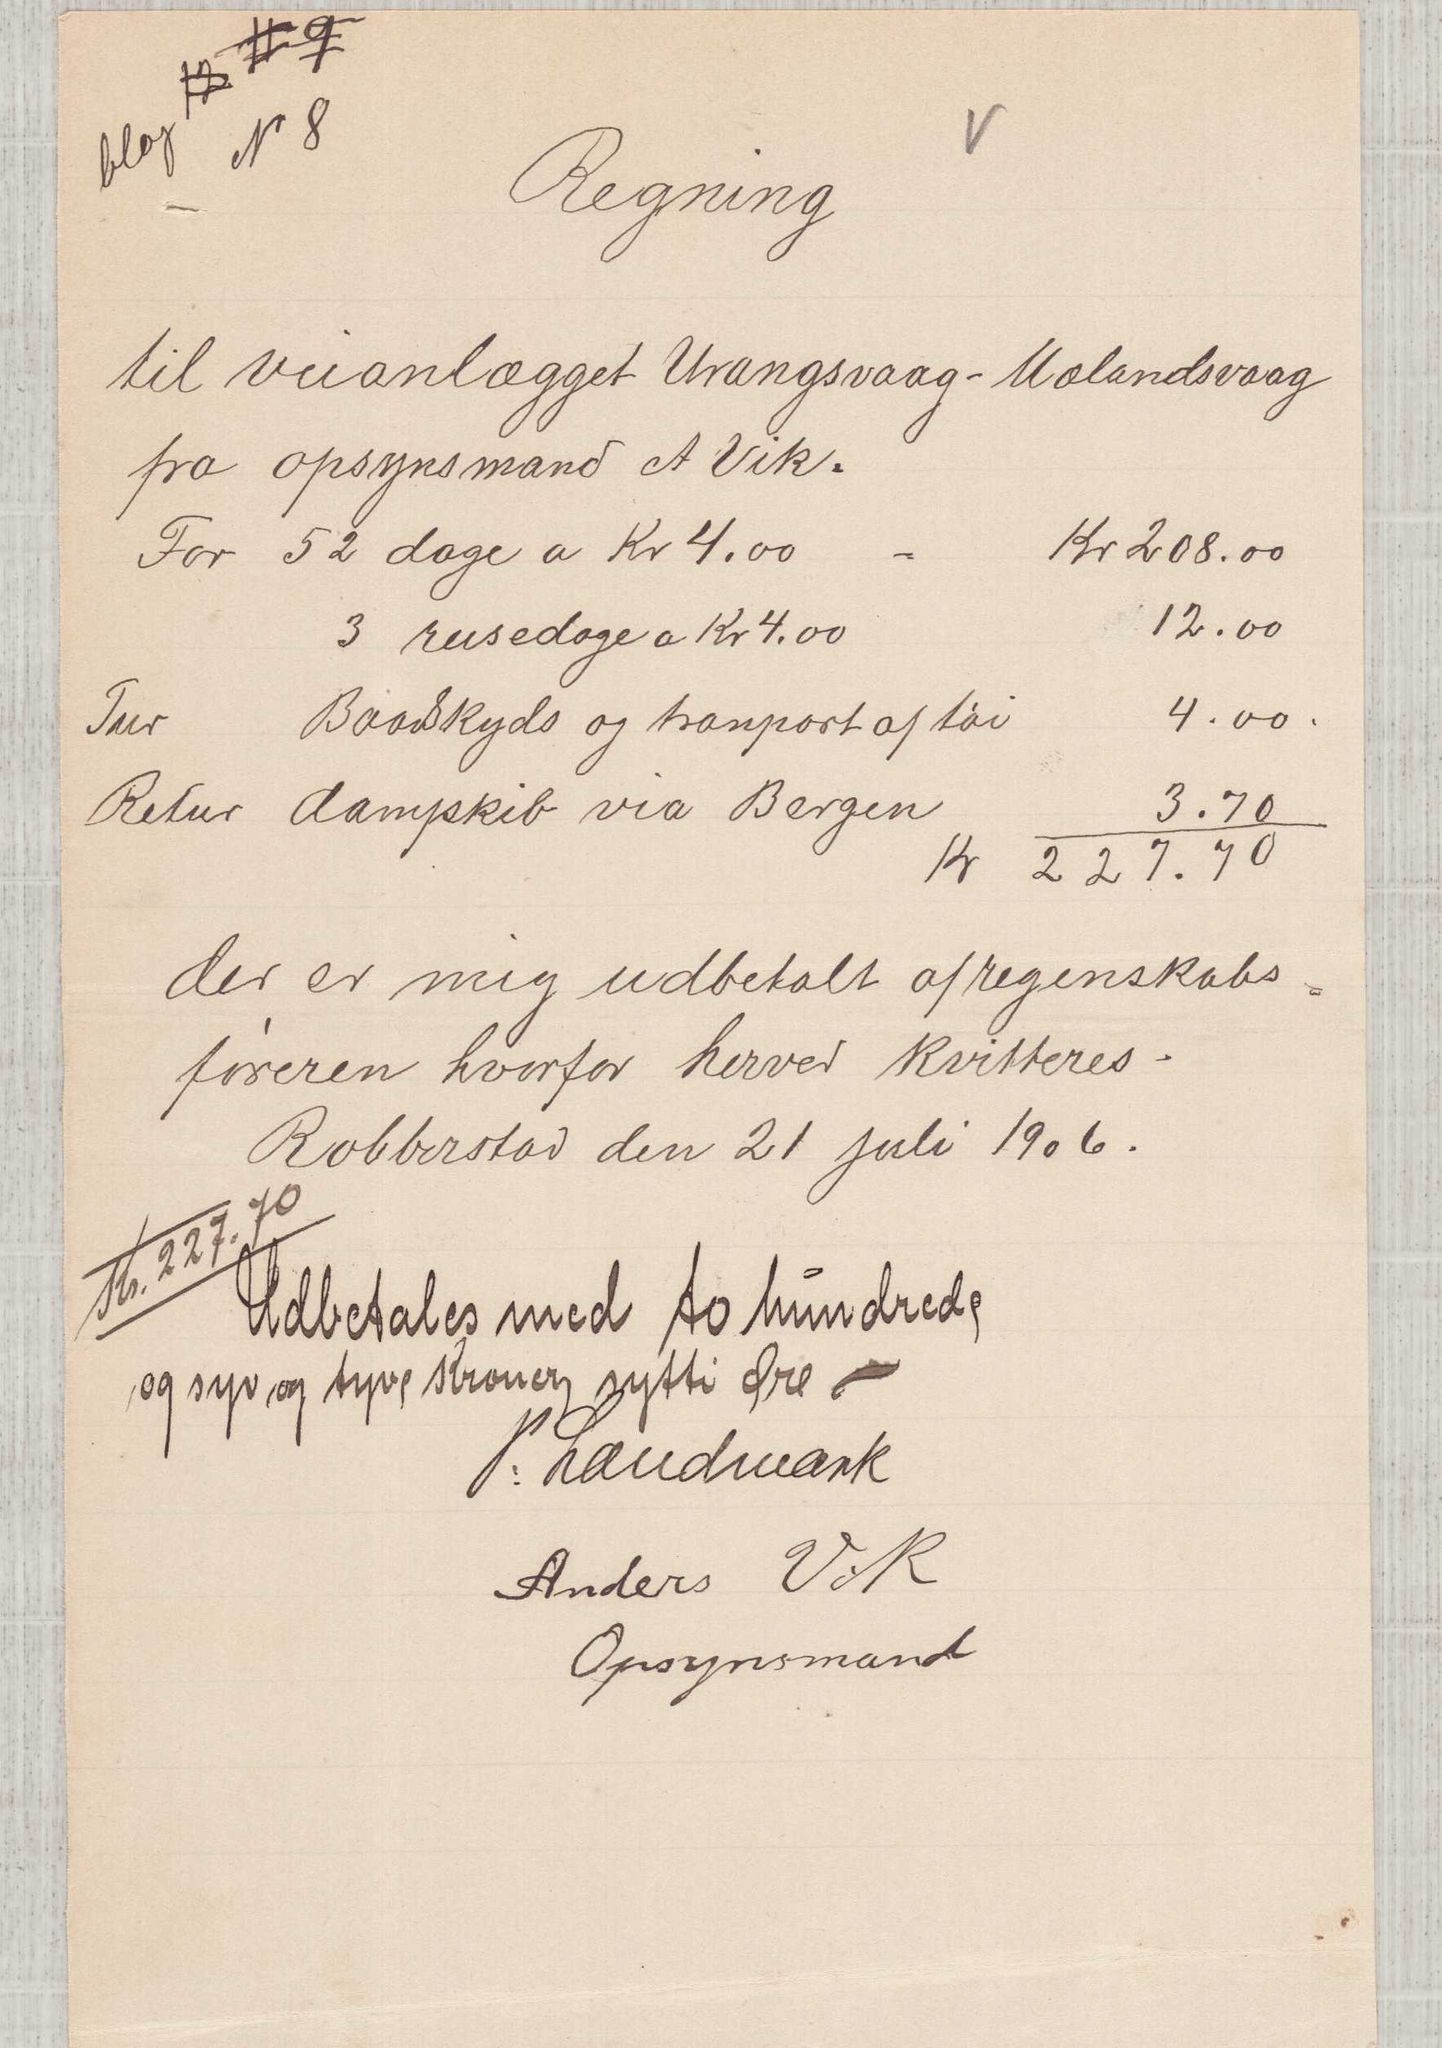 blag № 8
Regning
til veianlægget Urangsvaag - Mølandsvaag
fra opsynsmand A Vik.
For 52 dage a Kr 4.00 - Kr 208.00
3 reisedage a Kr 4.00 12.00
Tur Baadskyds og tranport af töi 4.00.
Retur dampskib via Bergen 3.70
Kr 227.70
der er mig udbetalt af regenskabs=
føreren hvorfor herved kvitteres -
Robberstad den 21 juli 1906.
Kr. 227.70
Udbetales med to hundrede
og syv og tyve Kroner sytti Øre -
Landmark
Anders Vik
Opsynsmand